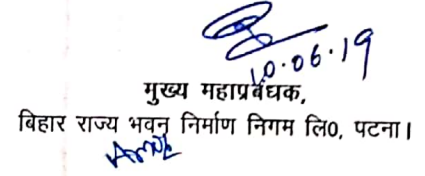 10.06.19
मुख्य महाप्रबंधक,
बिहार राज्य भवन निर्माण निगम लि0, पटना।